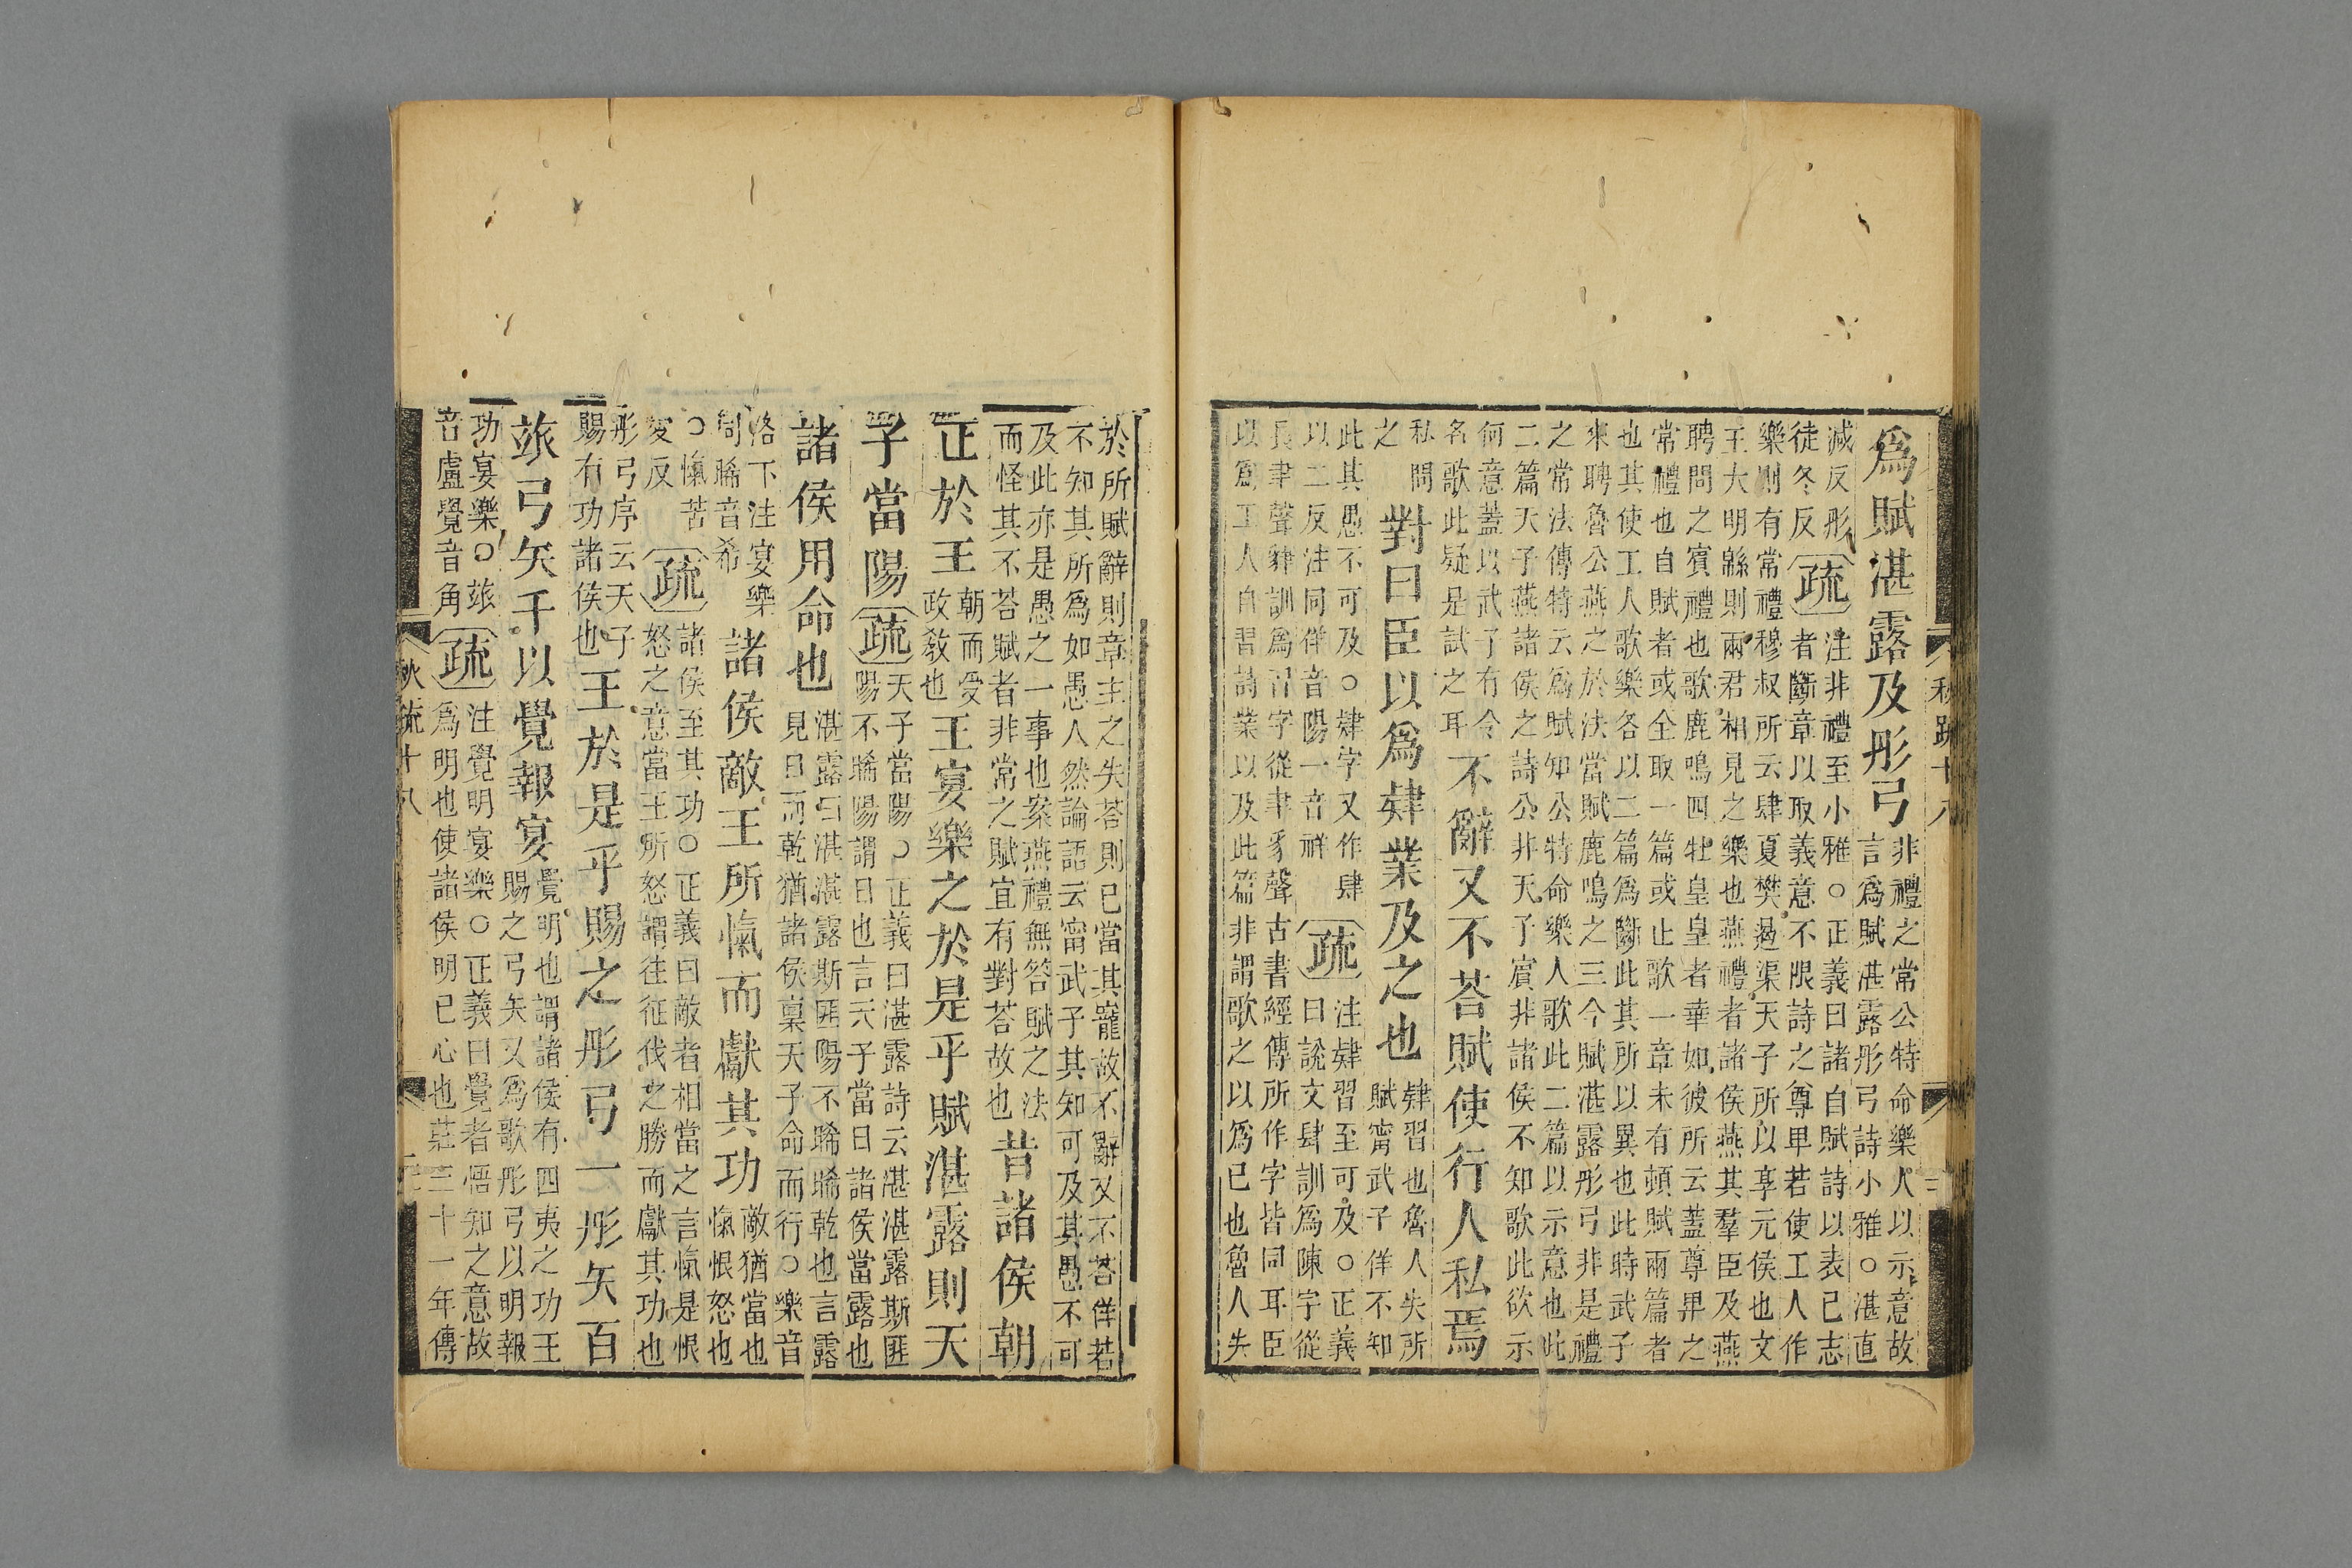 爲賦湛露及彤弓
非禮之常公特命樂人以示意故
言爲賦湛露彤弓詩小雅○湛直
減反彤
徒冬反
疏
注非禮至小雅○正義曰諸自賦詩以表已志
者斷章以取義意不限詩之尊卑若使工人作
樂則有常禮穆叔所云肆夏樊遏渠天子所以享元侯也文
王大明緜則兩君相見之樂也燕禮者諸侯燕其羣臣及燕
聘問之賓禮也歌鹿鳴四牡皇皇者華如彼所云蓋尊畢之
常禮也自賦者或全取一篇或止歌一章未有頓賦兩篇者
也其使工人歌樂各以二篇爲斷此其所以異也此時武子
來聘魯公燕之於法當賦鹿鳴之三今賦湛露彤弓非是禮
之常法傳特云爲賦知公特命樂人歌此二篇以示意也此
二篇天子燕諸侯之詩公非天子賓非諸侯不知歌此欲示
何意蓋以武子有令
名歌此疑是試之耳
不辭又不荅賦使行人私焉
私問
之
對曰臣以爲肄業及之也
肄習也魯人失所
賦甯武子佯不知
此其愚不可及○肄字又作肆
以二反注同佯音陽一音祥
疏
注肄習至可及○正義
曰說文肆訓爲陳字從
長聿聲肄訓爲習字從聿豸聲古書經傳所作字皆同耳臣
以爲工人自習詩業以及此篇非謂歌之以爲已也魯人失
秋疏十八
於所賦辭則章主之失荅則已當其寵故不辭又不荅佯若
不知其所爲如愚人然論語云甯武子其知可及其愚不可
及此亦是愚之一事也案燕禮無答賦之法
而怪其不荅賦者非常之賦宜有對荅故也
昔諸侯朝
正於王
朝而受
政敎也
王宴樂之於是乎賦湛露則天
子當陽
疏
天子當陽○正義曰湛露詩云湛湛露斯匪
陽不晞陽謂日也言天子當日諸侯當露也
諸侯用命也
湛露曰湛湛露斯匪陽不晞晞乾也言露
見日而乾猶諸侯稟天子命而行○樂音
洛下注宴樂
同晞音希
諸侯敵王所愾而獻其功
敵猶當也
愾恨怒也
○愾苦
愛反
疏
諸侯至其功○正義曰敵者相當之言愾是恨
怒之意當王所怒謂往征伐之勝而獻其功也
彤弓序云天子
賜有功諸侯也
王於是乎賜之彤弓一彤矢百
玈弓矢千以覺報宴
覺明也謂諸侯有四夷之功王
賜之弓矢又爲歌彤弓以明報
功宴樂○玈
音盧覺音角
疏
注覺明宴樂○正義曰覺者悟知之意故
爲明也使諸侯明已心也莊三十一年傳
秋疏十八